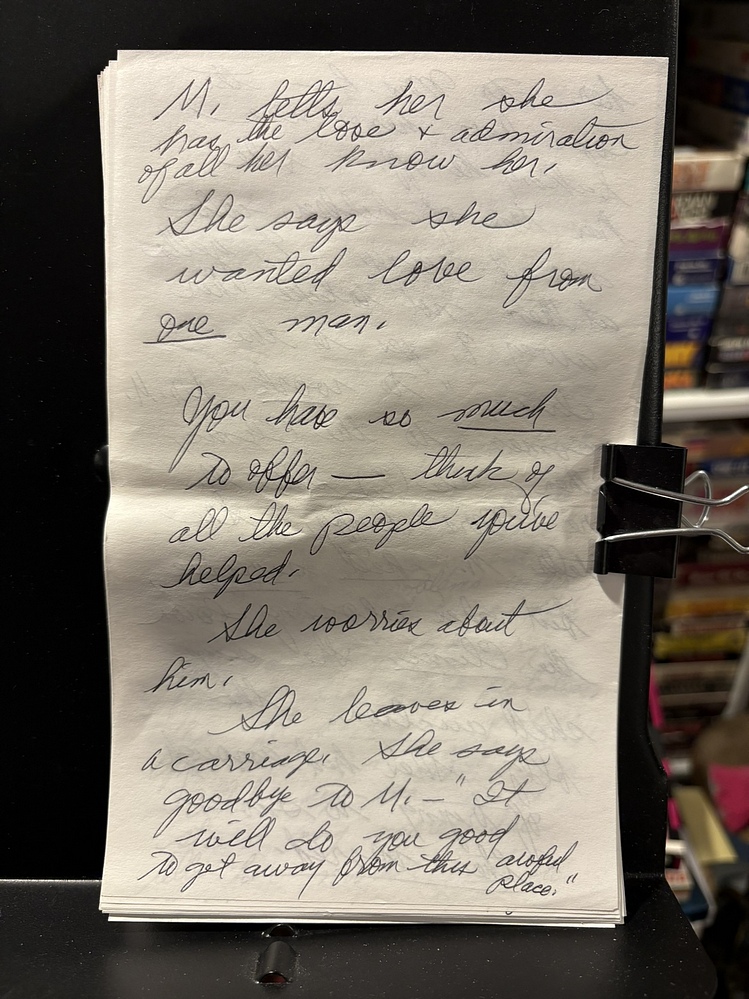 M. tells her she
has the love & admiration
of all her know her.
She says she
wanted love from
one man.
You have so much
to offer — think of
all the people you've
helped.
She worries about
him.
She leaves in
a carriage. She says
goodbye to M. — "It
will do you good
to get away from this awful
place."